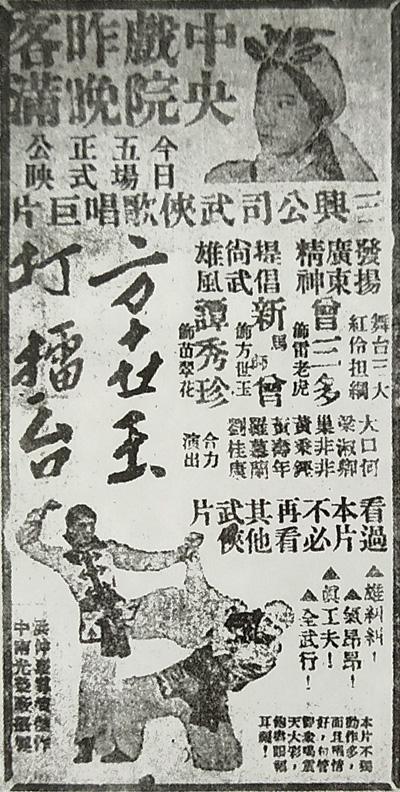 中央戲院昨晚客滿
今日五場正式公映
三興公司武俠歌唱巨片
發揚廣東精神
提倡尚武雄風
舞台三大紅伶担綱
曾三多
飾雷老虎
新馬師曾
飾方世玉
譚秀珍
飾苗翠花
大口何
梁淑卿
巢非非
黃秉鏗
黃壽年
羅慕蘭
劉桂康
合力演出
方世玉
打擂台
看過本片不必再看其他武俠片
▲雄糾糾!
▲氣昂昂!
▲眞工夫!
▲全武行!
本片不獨
動作多,
而且唱情
好,
喝震
天大彩,
眼福